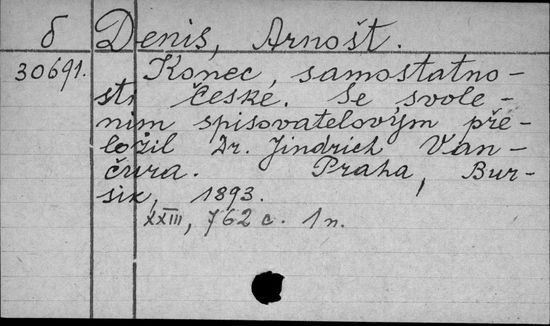 б Denis, Arnošt.
30691. Konec samostatno-
sti české. Se svole-
ním spisovatelovým pře-
ložil Dr. Jindřich Van-
čura. Praha, Bur-
sik, 1893.
XXIII, 762 c. 1 п.